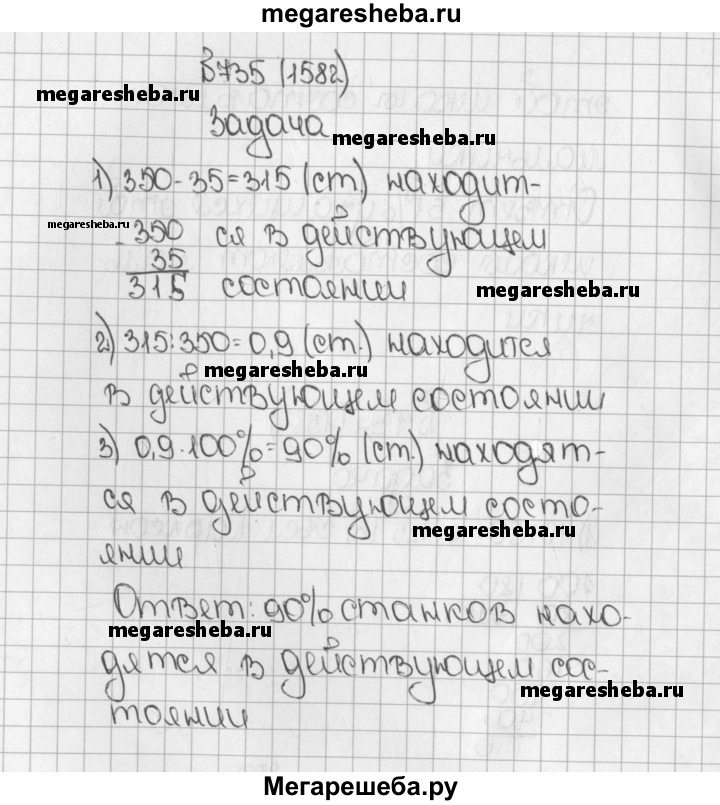 megaresheba.ru
В735 (1582)
megaresheba.ru
Задача
megaresheba.ru
1) 350-35=315 (ст.) находит-
megaresheba.ru
-350 ся в действующем
35
315 состоянии
megaresheba.ru
2) 315:350=0,9 (ст.) находится
megaresheba.ru
в действующем состоянии
3) 0,9·100%=90% (ст.) находят-
ся в действующем состо-
megaresheba.ru
янии
Ответ: 90% станков нахо-
megaresheba.ru
дятся в действующем сос-
megaresheba.ru
тоянии
Мегарешеба.ру